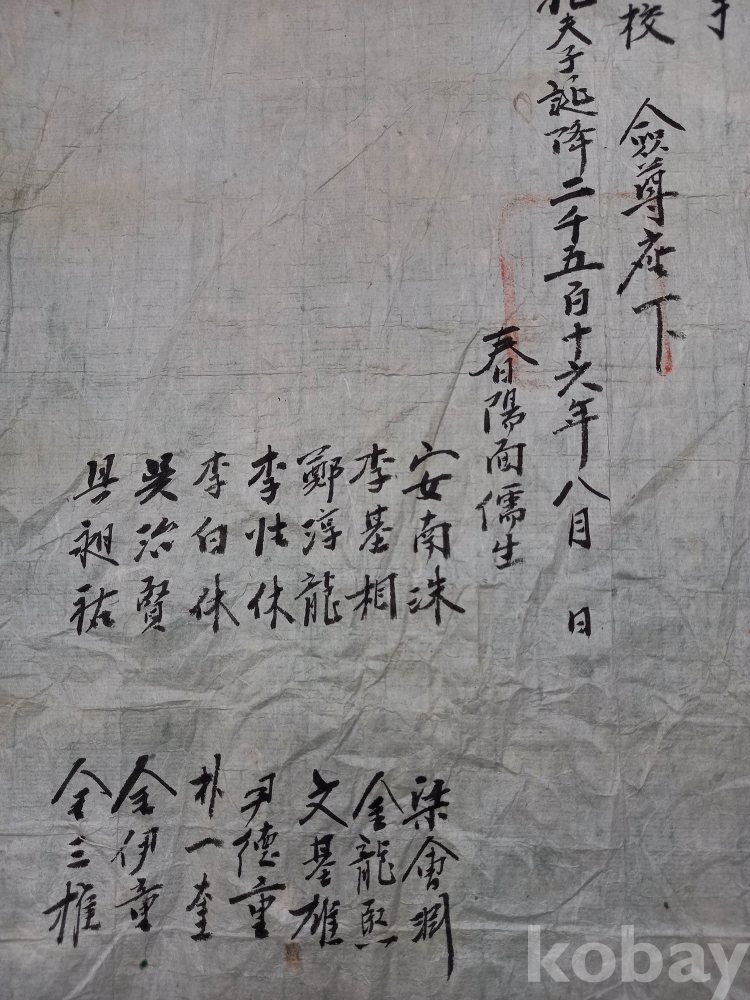 校 僉尊座下
孔夫子誕降二千五百十六年八月 日
春陽面儒生
安南洙
李基相
鄭淳龍
李性休
李白休
吳治賢
具昶祐
梁會淵
金龍熙
文基雄
尹德重
朴一奎
金伊童
金三雄
kobay